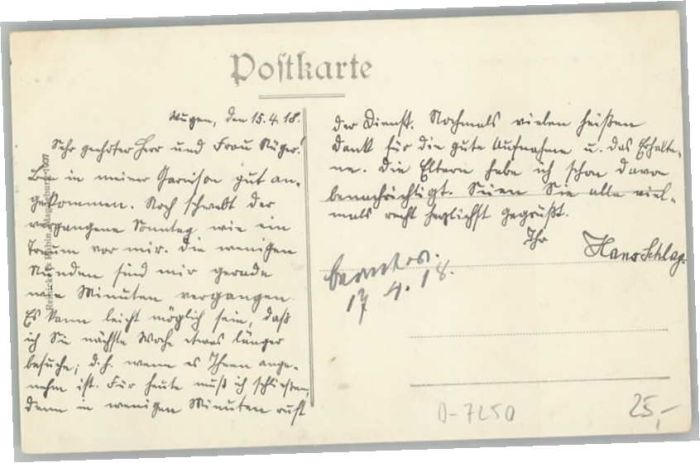 Postkarte
den 15.4.18.
Sehr geehrter Herr und Frau Krüger!
Bin in meiner Garnison gut an-
gekommen. Noch schwebt der
vergangene Sonntag wie ein
Traum vor mir. Die wenigen
Stunden sind mir gerade
wie Minuten vergangen.
Es kann leicht möglich sein, daß
ich Sie nächste Woche etwas länger
besuche; d.h. wenn es Ihnen ange-
nehm ist. Für heute muß ich schließen
denn in wenigen Minuten ruft
der Dienst. Nochmals vielen heißen
Dank für die gute Aufnahme u. das Erhalte-
ne. Die Eltern habe ich schon davon
benachrichtigt. Seien Sie alle viel-
mals recht herzlichst gegrüßt.
Ihr Hans Schlag.
beantw.
17.4.18.
D-7250
25,-